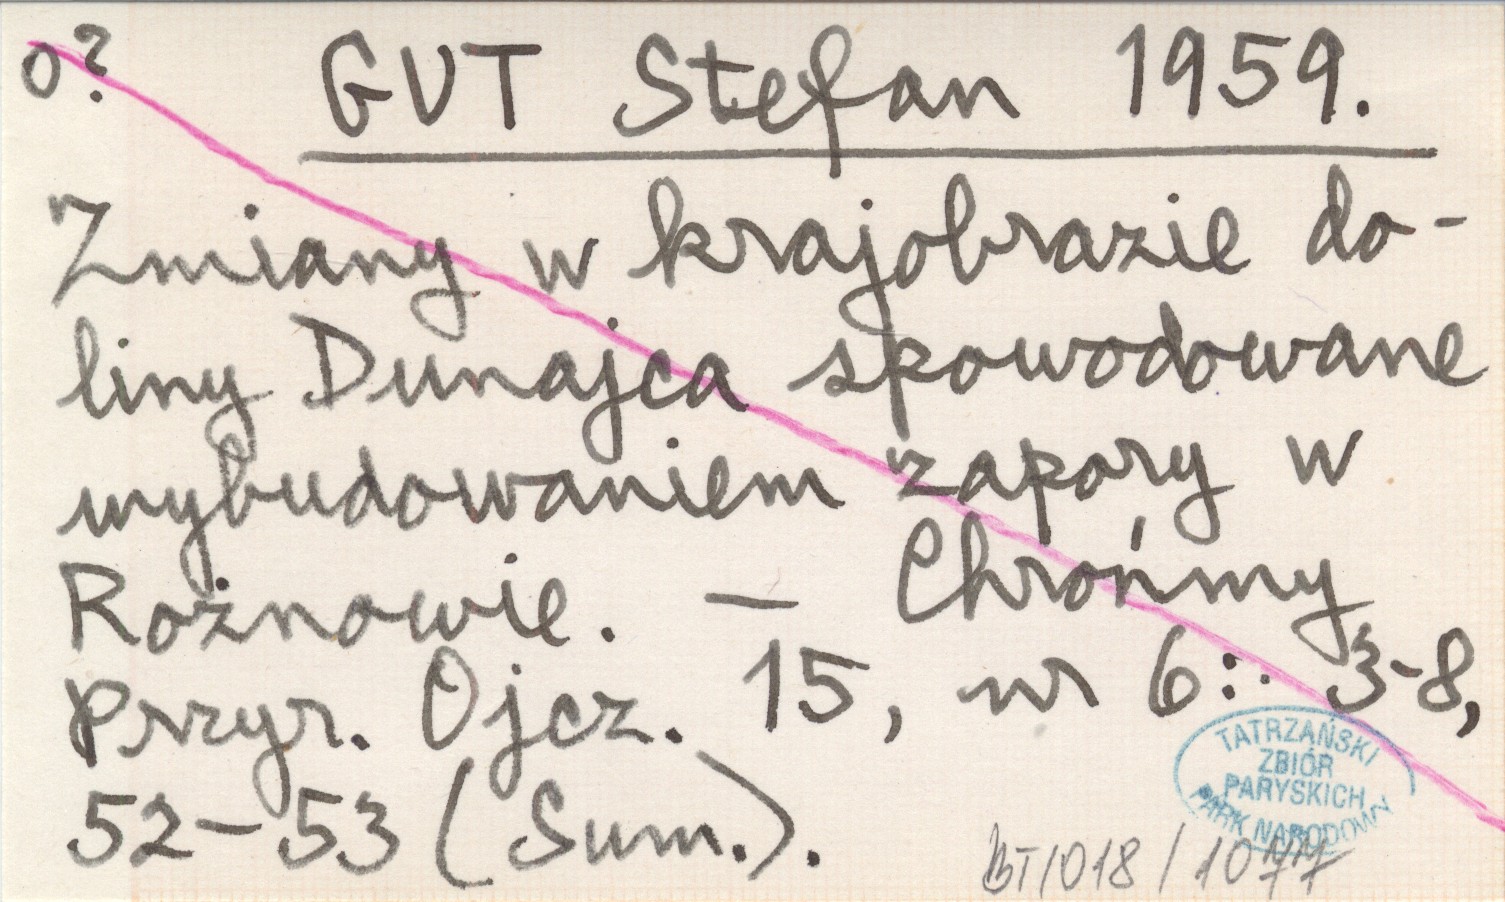 o?
GUT Stefan 1959.
Zmiany w krajobrazie do-
liny Dunajca spowodowane
wybudowaniem zapory w
Rożnowie. — Chrońmy
przyr. Ojcz. 15, nr 6: 3-8,
52-53 (Sum.).
TATRZAŃSKI
ZBIÓR
PARYSKICH
PARK NARODOWY
BT/018/1077